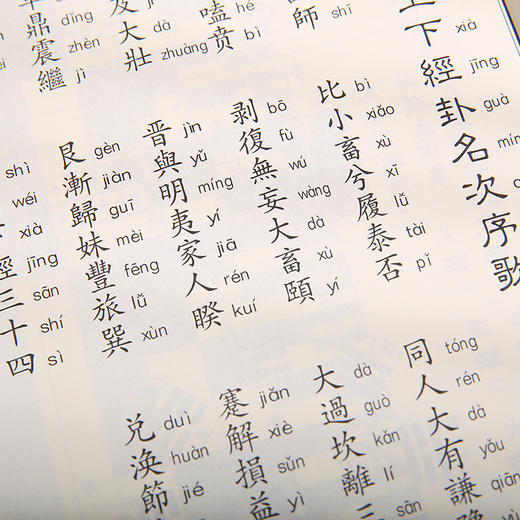 下 xià 經 jīng 卦 guà 名 次 序 歌
師 shī 比 bǐ 小 xiǎo 畜 xù 兮 xī 履 lǚ 泰 tài 否 pǐ 同 tóng 人 rén 大 dà 有 yǒu 謙 qiān
嗑 hé 賁 bì 剝 bō 復 fù 無 wú 妄 wàng 大 dà 畜 xù 頤 yí 大 dà 過 guò 坎 kǎn 離 lí 三 sān
大 dà 壯 zhuàng 晉 jìn 與 yǔ 明 míng 夷 yí 家 jiā 人 rén 睽 kuí 蹇 jiǎn 解 xiè 損 sǔn 益 yì
鼎 dǐng 震 zhèn 繼 jì 艮 gèn 漸 jiàn 歸 guī 妹 mèi 豐 fēng 旅 lǚ 巽 xùn 兌 duì 渙 huàn 節 jié
shì wéi xià 經 jīng 三 sān 十 shí 四 sì